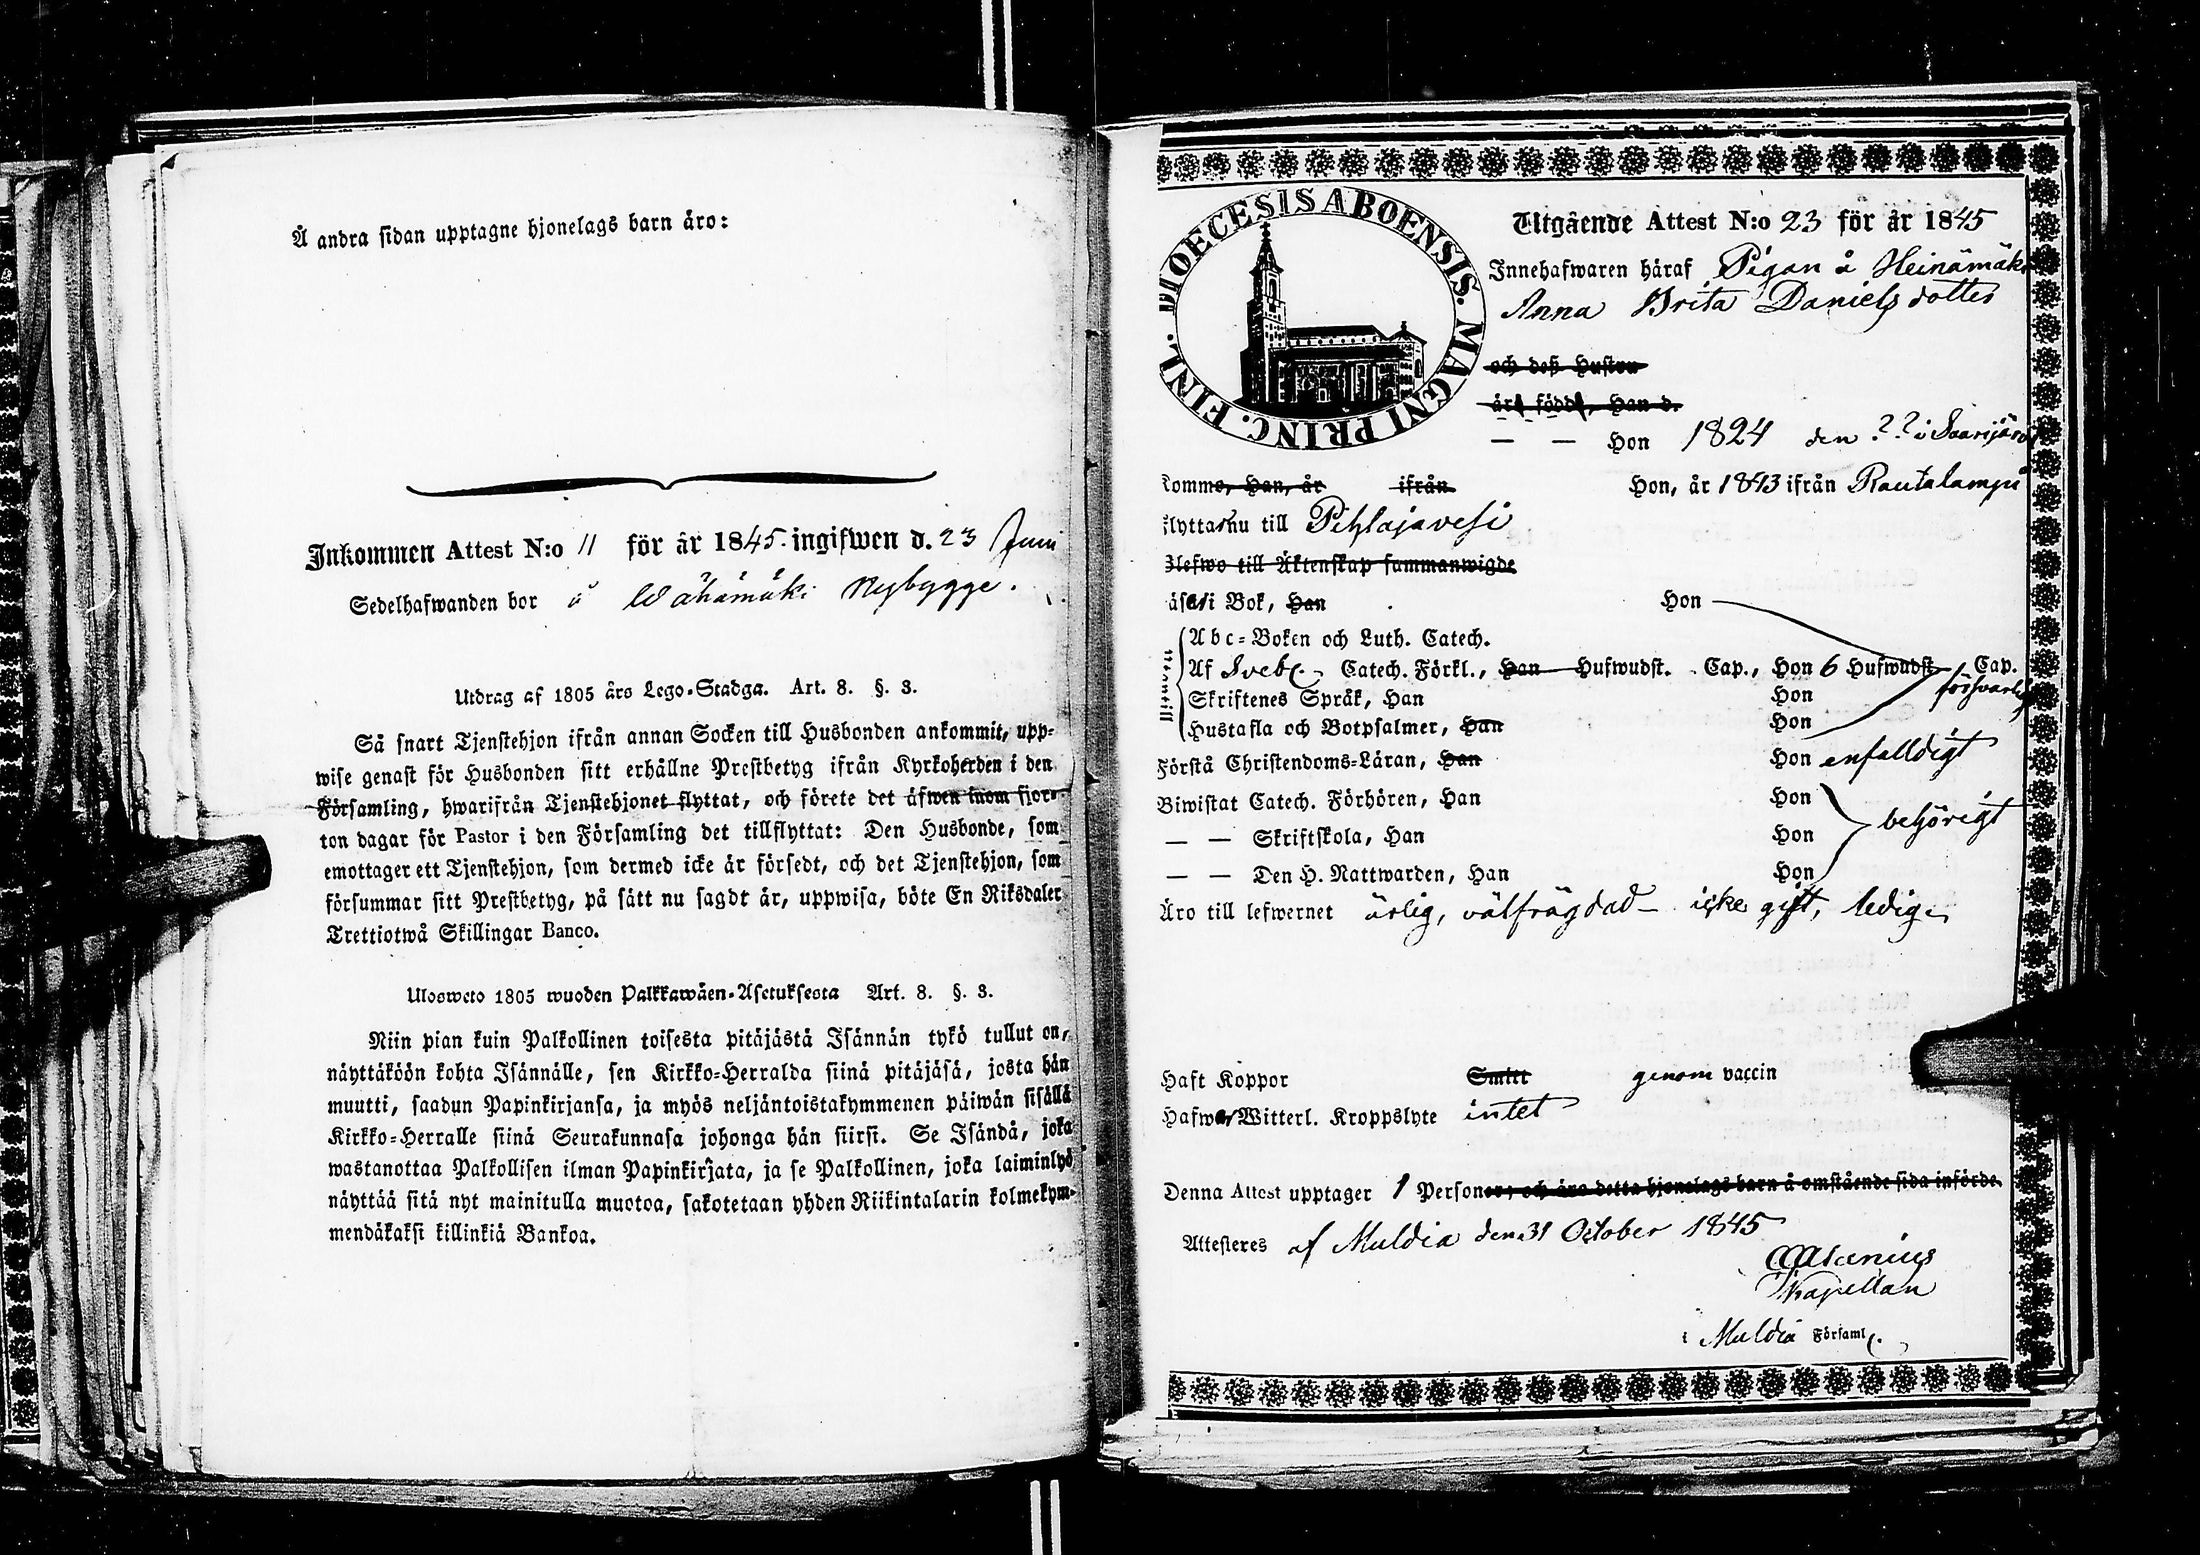 Å andra sidan upptagne hjonelags barn äro:
Inkommen Attest N:o 11 för år 1845 ingifwen d. 23 Juni
Sedelhafwanden bor å Wähämäki Nybygge.
Utdrag af 1805 års Lego-Stadga. Art. 8. §. 3.
Så snart Tjenstehjon ifrån annan Socken till Husbonden ankommit, upp-
wise genast för Husbonden sitt erhållne Prestbetyg ifrån Kyrkoherden i den
Församling, hwarifrån Tjenstehjonet flyttat, och förete det äfwen inom fjor-
ton dagar för Pastor i den Församling det tillflyttat: Den Husbonde, som
emottager ett Tjenstehjon, som dermed icke är försedt, och det Tjenstehjon, som
försummar sitt Prestbetyg, på sätt nu sagdt är, uppwisa, böte En Riksdaler
Trettiotwå Skillingar Banco.
Ulosweto 1805 wuoden Palkkawäen-Asetuksesta Art. 8. §. 3.
Niin pian kuin Palkollinen toisesta pitäjästä Isännän tykö tullut on,
näyttäköön kohta Isännälle, sen Kirkko-Herralda siinä pitäjäsä, josta hän
muutti, saadun Papinkirjansa, ja myös neljäntoistakymmenen päiwän sisällä
Kirkko-Herralle siinä Seurakunnasa johonga hän siirsi. Se Isändä, joka
wastanottaa Palkollisen ilman Papinkirjata, ja se Palkollinen, joka laiminlyö
näyttää sitä nyt mainitulla muotoa, sakotetaan yhden Riikintalarin kolmekym-
mendäkaksi killinkiä Bankoa.
DIOECESIS ABOENSIS. MAGNI PRINC. FINL.
Utgående Attest N:o 23 för år 1845
Innehafwaren häraf Pigan å Heinämäki
Anna Brita Danielsdotter
och deß Hustru
äro födde, Han d.
— — Hon 1824 den ?? i Saarijärvi
komme, Han, år ifrån Hon, år 1843 ifrån Rautalampi
flyttar nu till Pihlajavesi
Blefwo till Äktenskap sammanwigde
äser i Bok, Han Hon
Abc-Boken och Luth. Catech.
Af Sveb. Catech. Förkl., Han Hufwudst. Cap., Hon 6 Hufwudst. Cap.
Skriftenes Språk, Han Hon försvarligt
Hustafla och Botpsalmer, Han Hon
Förstå Christendoms-Läran, Han Hon enfalldigt
Biwistat Catech. Förhören, Han Hon
— — Skriftskola, Han Hon behörigt
— — Den H. Nattwarden, Han Hon
Äro till lefwernet ärlig, välfrägdad — icke gift, ledig
Haft Koppor Smitt genom vaccin
Hafwa Witterl. Kroppslyte intet
Denna Attest upptager 1 Personer, och äro detta hjonelags barn å omstående sida införde.
Attesteres af Muldia den 31 October 1845
Kapellan
i Muldia Församl.